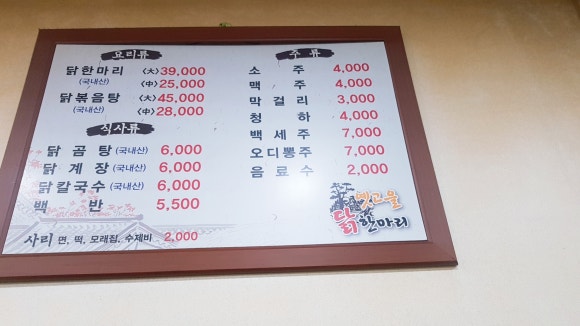 요리류
닭한마리 <大>39,000
(국내산) <中>25,000
닭볶음탕 <大>45,000
(국내산) <中>28,000
식사류
닭곰탕(국내산) 6,000
닭계장(국내산) 6,000
닭칼국수(국내산) 6,000
백반 5,500
사리 면, 떡, 모래집, 수제비 2,000
주류
소주 4,000
맥주 4,000
막걸리 3,000
청하 4,000
백세주 7,000
오디뽕주 7,000
음료수 2,000
옛고을
닭한마리